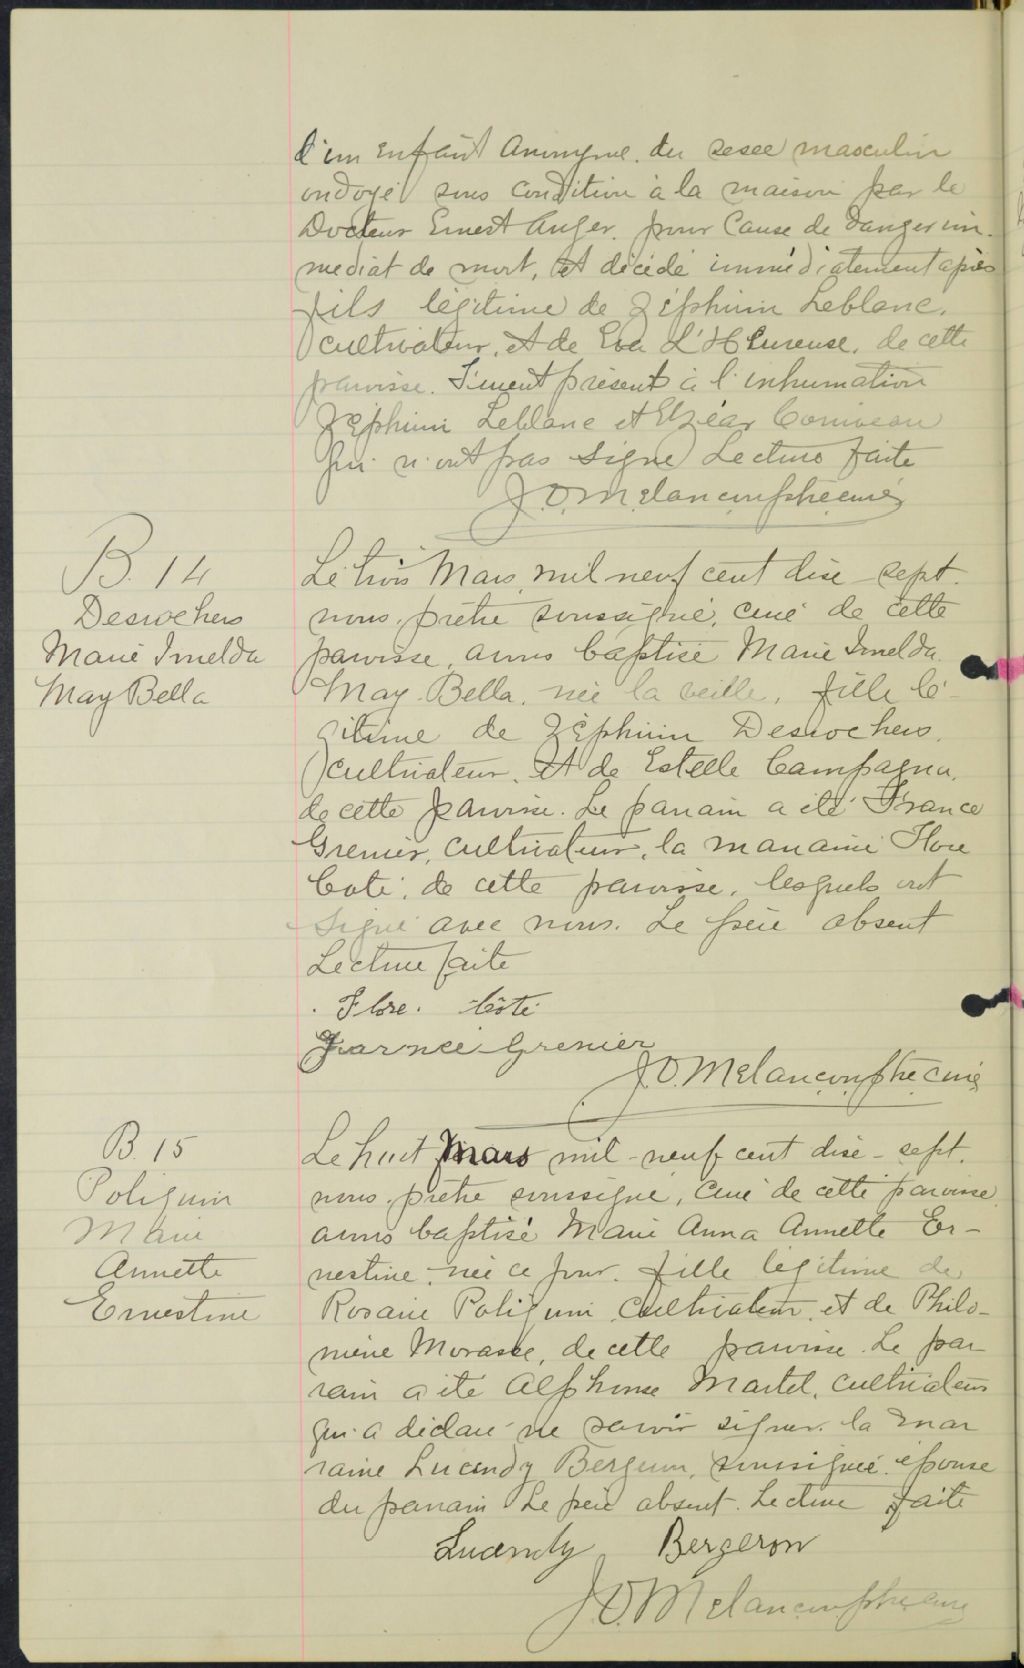 d'un enfant Anonyme du sexe masculin
ondoyé sous condition à la maison par le
Docteur Ernest Auger, pour Cause de danger im-
médiat de mort, et décédé immédiatement après
fils légitime de Zéphirin Leblanc,
cultivateur, et de Eva L'Heureuse, de cette
paroisse. Furent présents à l'inhumation
Zéphirin Leblanc et Elzéar Corriveau
qui n'ont pas signé Lecture faite
J.O. Melançon ptre curé
B. 14
Desrochers
Marie Imelda
May Bella
Le trois Mars mil neuf cent dix-sept.
nous, prêtre soussigné, curé de cette
paroisse, avons baptisé Marie Imelda
May Bella, née la veille, fille lé-
gitime de Zéphirin Desrochers,
cultivateur, et de Estelle Campagna,
de cette paroisse. Le parrain a été France
Grenier, cultivateur, la marraine Flore
Coté, de cette paroisse, lesquels ont
signé avec nous. Le père absent
Lecture faite
Flore. Côté
Grenier
J.O. Melançon ptre curé
B. 15
Poliquin
Marie
Annette
Ernestine
Le huit Mars mil-neuf cent dix-sept,
nous, prêtre soussigné, curé de cette paroisse
avons baptisé Marie Anna Annette Er-
nestine, née ce jour, fille légitime de
Rosaire Poliquin, cultivateur, et de Philo-
mène Morasse, de cette paroisse. Le par-
rain a été Alphonse Martel, cultivateur
qui a déclaré ne savoir signer. la mar
raine Lucendy Bergeron, soussignée, épouse
du parrain Le père absent. Lecture faite
Lucendy Bergeron
J.O. Melançon ptre curé